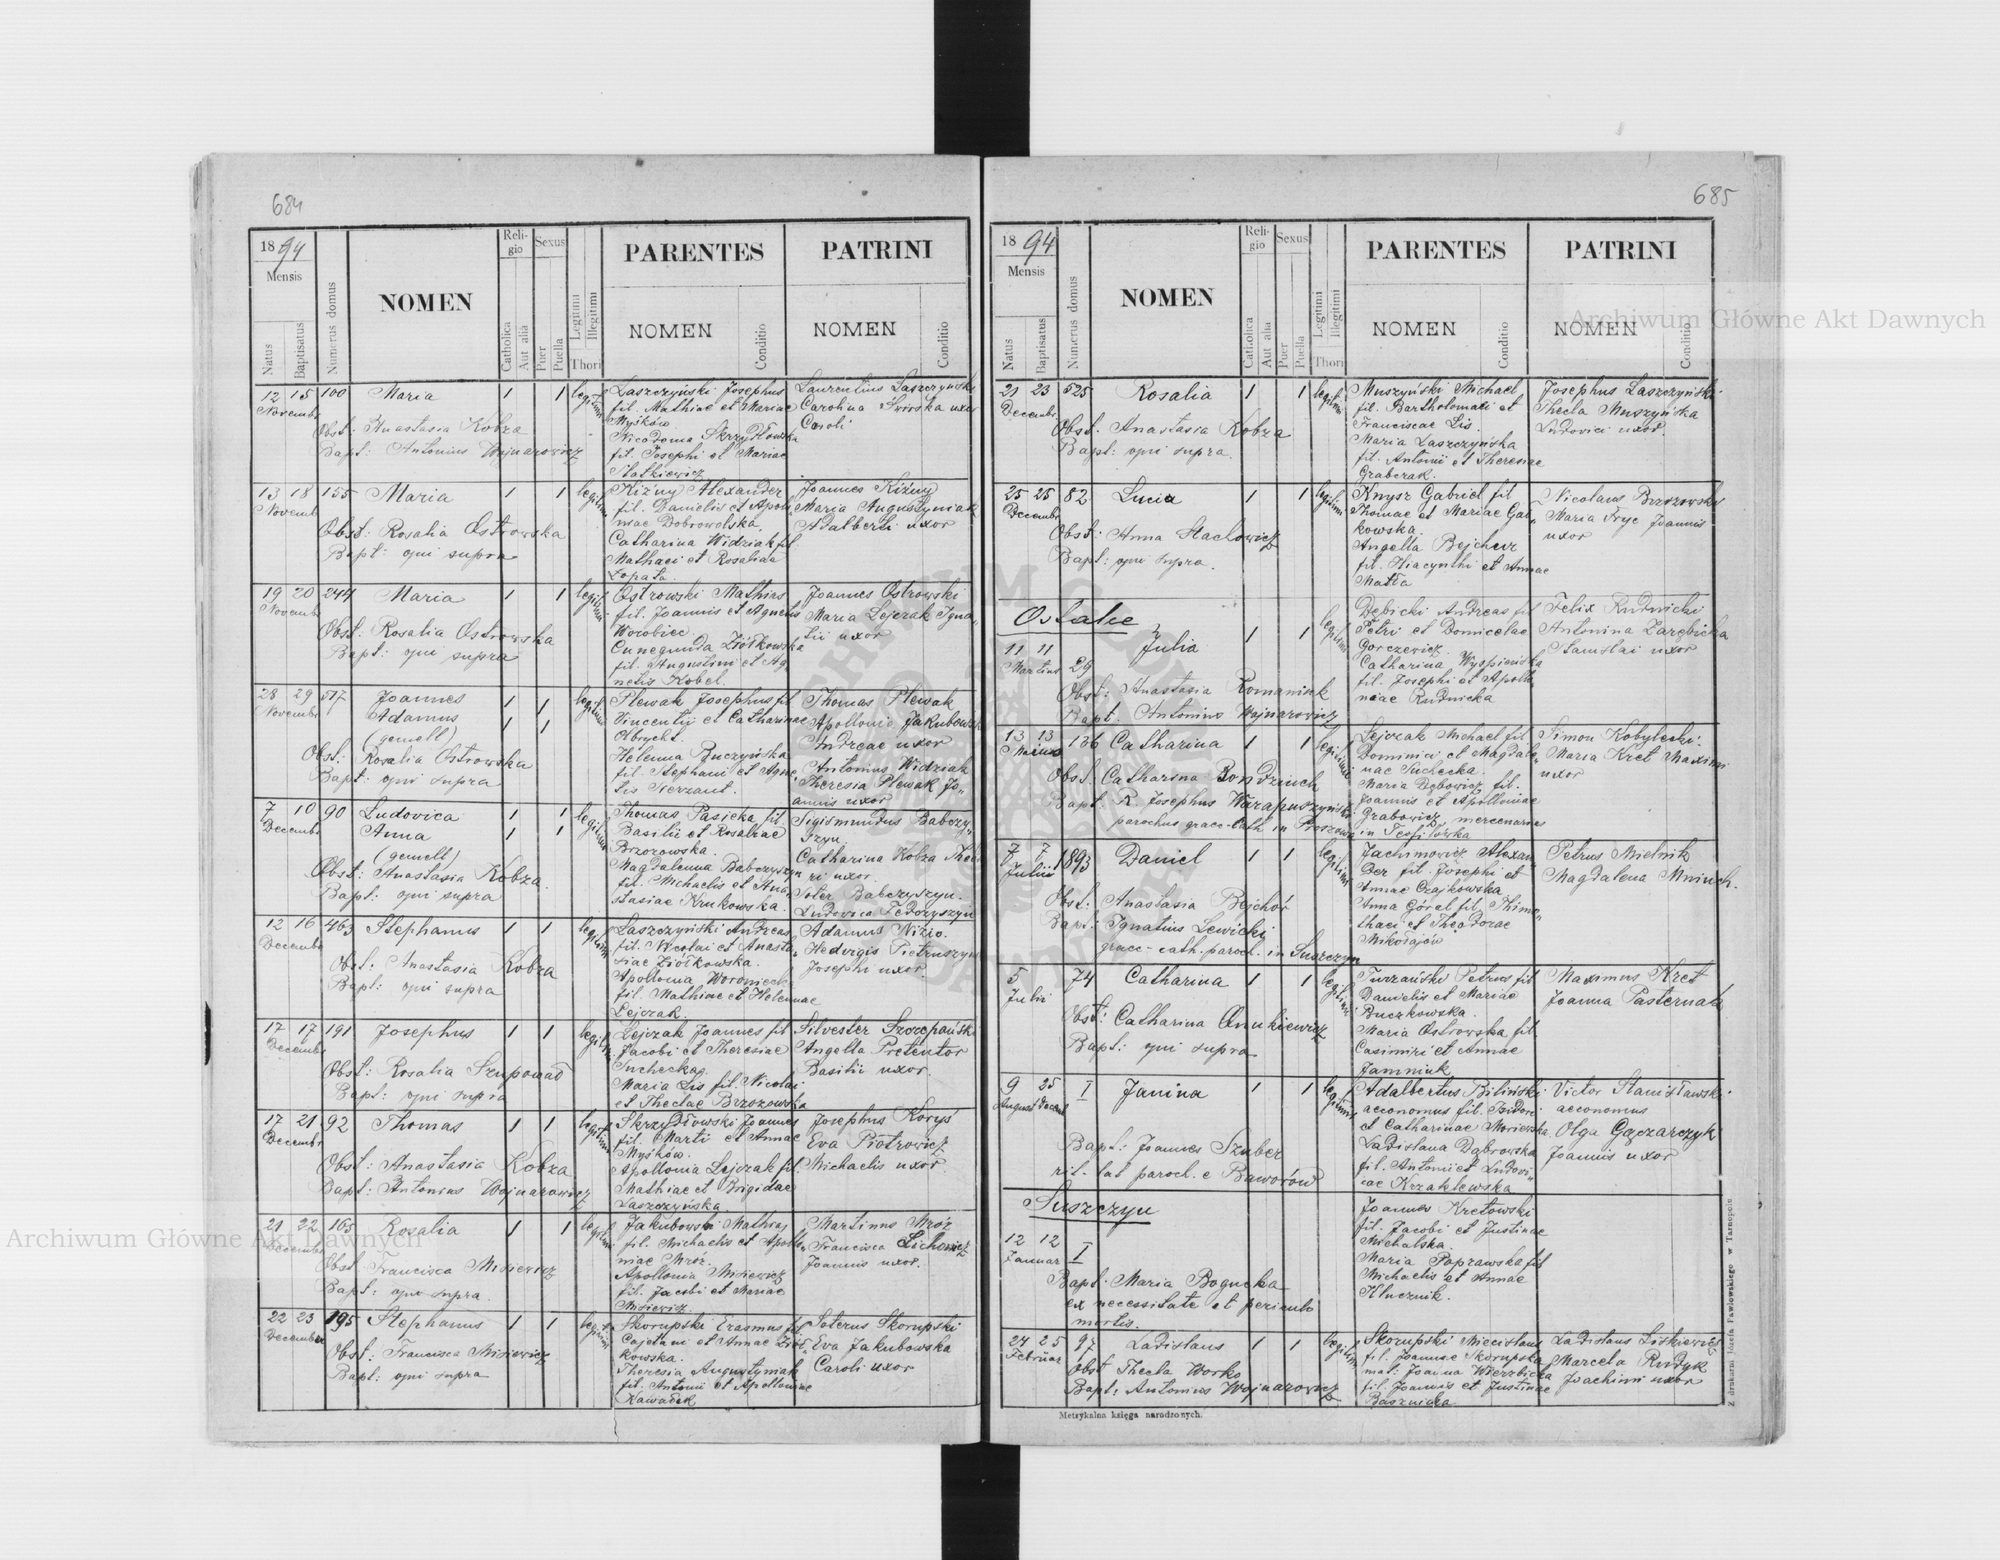 684
1894
Mensis
Natus
Baptisatus
Numerus domus
NOMEN
Religio
Catholica
Aut alia
Sexus
Puer
Puella
Legitimi
Illegitimi
Thori
PARENTES
NOMEN
Conditio
PATRINI
NOMEN
Conditio
12 15 100 Maria 1 1 legitimi
Novembr
Obst: Anastasia Kobza
Bapt: Antonius Wojnarowicz
Laszczyński Josephus
fil. Mathiae et Mariae
Myśków
Nicodema Skrzydłowska
fil. Josephi et Mariae
Statkiewicz
Laurentius Laszczyński
Carolina Swirska uxor
Caroli
13 18 155 Maria 1 1 legitimi
Novemb
Obst: Rosalia Ostrowska
Bapt: qui supra
Kiżny Alexander
fil. Danielis et Apolo
niae Dobrowolska.
Catharina Widziak fil
Mathaei et Rosaliae
Łopata.
Joannes Kiżny
Maria Augustyniak
Adalberti uxor
19 20 244 Maria 1 1 legitimi
Novemb
Obst. Rosalia Ostrowska
Bapt: qui supra
Ostrowski Mathias
fil. Joannis et Agnetis
Worobiec
Cunegunda Ziółkowska
fil. Augustini et Ag
netis Kobel.
Joannes Ostrowski
Maria Lejczak Igna
tii uxor
28 29 517 Joannes 1 1 legitimi
Novembr Adamus 1 1
(gemell)
Obst: Rosalia Ostrowska
Bapt: qui supra
Plewak Josephus fil
Vincentii et Catharinae
Olbrycht.
Helenna Buczyńska
fil. Stephani et Agne
tis
Thomas Plewak
Apollonia Jakubowska
Andreae uxor
Antonius Widziak
Theresia Plewak Jo
annis uxor
7 10 90 Ludovica 1 1 legitimi
Decemb Anna 1 1
(gemell)
Obst: Anastasia Kobza.
Bapt: qui supra
Thomas Pasicka fil.
Basilii et Rosaliae
Brzozowska.
Magdalenna Babczyszyn
fil. Michaelis et Ana
stasiae Krukowska.
Sigismundus Babczy
szyn
Catharina Kobza Theo
ri uxor.
Soter Babczyszyn.
Ludovica Fedczyszyn
12 16 463 Stephanus 1 1 legitimi
Decemb
Obst: Anastasia Kobza
Bapt: qui supra
Laszczyński Andreas
fil. Nicolai et Anasta
siae Ziółkowska.
Apollonia Woroniecka
fil. Mathiae et Helennae
Lejczak.
Adamus Niżio
Hedvigis Pietruszyn
Josephi uxor
17 17 191 Josephus 1 1 legitimi
Decemb
Obst: Rosalia Szupowad
Bapt: qui supra
Lejczak Joannes fil
Jacobi et Theresiae
Suchecka.
Maria Lis fil. Nicolai
et Theclae Brzozowska
Silvester Szczepański
Angella Pretentor
Basilii uxor.
17 21 92 Thomas 1 1 legitimi
Decembr
Obst: Anastasia Kobza
Bapt: Antonius Wojnarowicz
Skrzydłowski Joannes
fil. Marti et Annae
Myśków.
Apollonia Lejczak fil.
Mathiae et Brigidae
Laszczyńska
Josephus Koryś
Eva Piotrowicz
Michaelis uxor
21 22 165 Rosalia 1 1 legitimi
Decemb
Obst. Francisca Misiewicz
Bapt: qui supra.
Jakubowski Mathias
fil. Michaelis et Apollo
niae Mróz.
Apollonia Misiewicz
fil. Jacobi et Mariae
Misiewicz.
Martinus Mróz
Francisca Lichowicz
Joannis uxor.
22 23 195 Stephanus 1 1 legitimi
December
Obst: Francisca Misiewicz
Bapt: qui supra
Skorupski Erasmus fil
Cajetani et Annae Ziół
kowska.
Theresia Augustyniak
fil. Antonii et Apolloniae
Kawałek
Soterus Skorupski
Eva Jakubowska
Caroli uxor
685
1894
Mensis
Natus
Baptisatus
Numerus domus
NOMEN
Religio
Catholica
Aut alia
Sexus
Puer
Puella
Legitimi
Illegitimi
Thori
PARENTES
NOMEN
Conditio
PATRINI
NOMEN
Conditio
21 23 525 Rosalia 1 1 legitimi
Decembr.
Obst. Anastasia Kobza
Bapt: qui supra.
Muszyński Michael
fil. Bartholomaei et
Franciscae Lis.
Maria Laszczyńska
fil. Antonii et Theresiae
Grabczak.
Josephus Laszczyński
Thecla Muszyńska
Ludovici uxor.
25 25 82 Lucia 1 1 legitimi
Decembr
Obst: Anna Stachowicz
Bapt: qui supra.
Knysz Gabriel fil
Thomae et Mariae Gał
kowska
Angella Bejcher
fil. Hiacynthi et Annae
Matła
Nicolaus Brzozowski
Maria Fryc Joannis
uxor
Ostalce
11 11 29 Julia 1 1 legitimi
Martius
Obst: Anastasia Romaniuk
Bapt. Antonius Wojnarowicz
Dębicki Andreas fil
Petri et Domicelae
Gorczewicz.
Catharina Wyspiańska
fil. Josephi et Apollo
niae Rudnicka
Felix Rudnicki
Antonina Zarębicka
Stanislai uxor
13 13 136 Catharina 1 1 legitimi
Obst. Catharina Bondziuch
Bapt. R. Josephus
parochus graec-cath in Proszowa
Lejczak Michael fil
Dominici et Magdale
nae Suchecka.
Maria Dębowicz fil.
Joannis et Apolloniae
Grabowicz, mercenarius
in Teofilówka
Simon Kobylecki.
Maria Kret Maximi
uxor
7 7 1893 Daniel 1 1 legitimi
Julius
Obst: Anastasia Bejchór
Bapt: Ignatius Lewicki
graec-cath. paroch. in Suszczyn
Jachimowicz Alexan
der fil. Josephi et
Annae Czajkowska
Anna Góral fil. Thimo
thaei et Theodorae
Mikołajów
Petrus Mielnik
Magdalena Mniuch.
5 74 Catharina 1 1 legitimi
Julii
Obst: Catharina Onukiewicz
Bapt: qui supra
Turzański Petrus fil
Danielis et Mariae
Buczkowska.
Maria Ostrowska fil.
Casimiri et Annae
Jamniuk
Maximus Kret
Joanna Pasternak
9 25 I Janina 1 1 legitimi
August Decemb
Bapt: Joannes Szuber
rit. lat paroch. e Baworów
Adalbertus Biliński
aeconomus fil. Isidori
et Catharinae Moriewska
Ladislaua Dąbrowska
fil. Antonii et Ludovi
cae Krzaklewska
Victor Stanisławski
aeconomus
Olga Gączarczyk
Joannis uxor
Suszczyn
12 12 I
Januar
Bapt. Maria Bogucka
ex necessitate et periculo
mortis.
Joannes Kretowski
fil. Jacobi et Justinae
Michalska.
Maria Poprawska fil
Michaelis et Annae
Klucznik.
24 25 97 Ladislaus 1 1 legitimi
Februar
Obst Thecla Worko
Bapt: Antonius Wojnarowicz
Skorupski Miecislaus
fil. Joannae Skorupska
mat: Joanna Wierzbicka
fil. Joannis et Justinae
Basznicka
Ladislaus Liskiewicz
Marcela Rudyk
Joachimi uxor
Metrykalna księga narodzonych.
Z drukarni Józefa Pawłowskiego w Tarnopolu
Archiwum Główne Akt Dawnych
Archiwum Główne Akt Dawnych